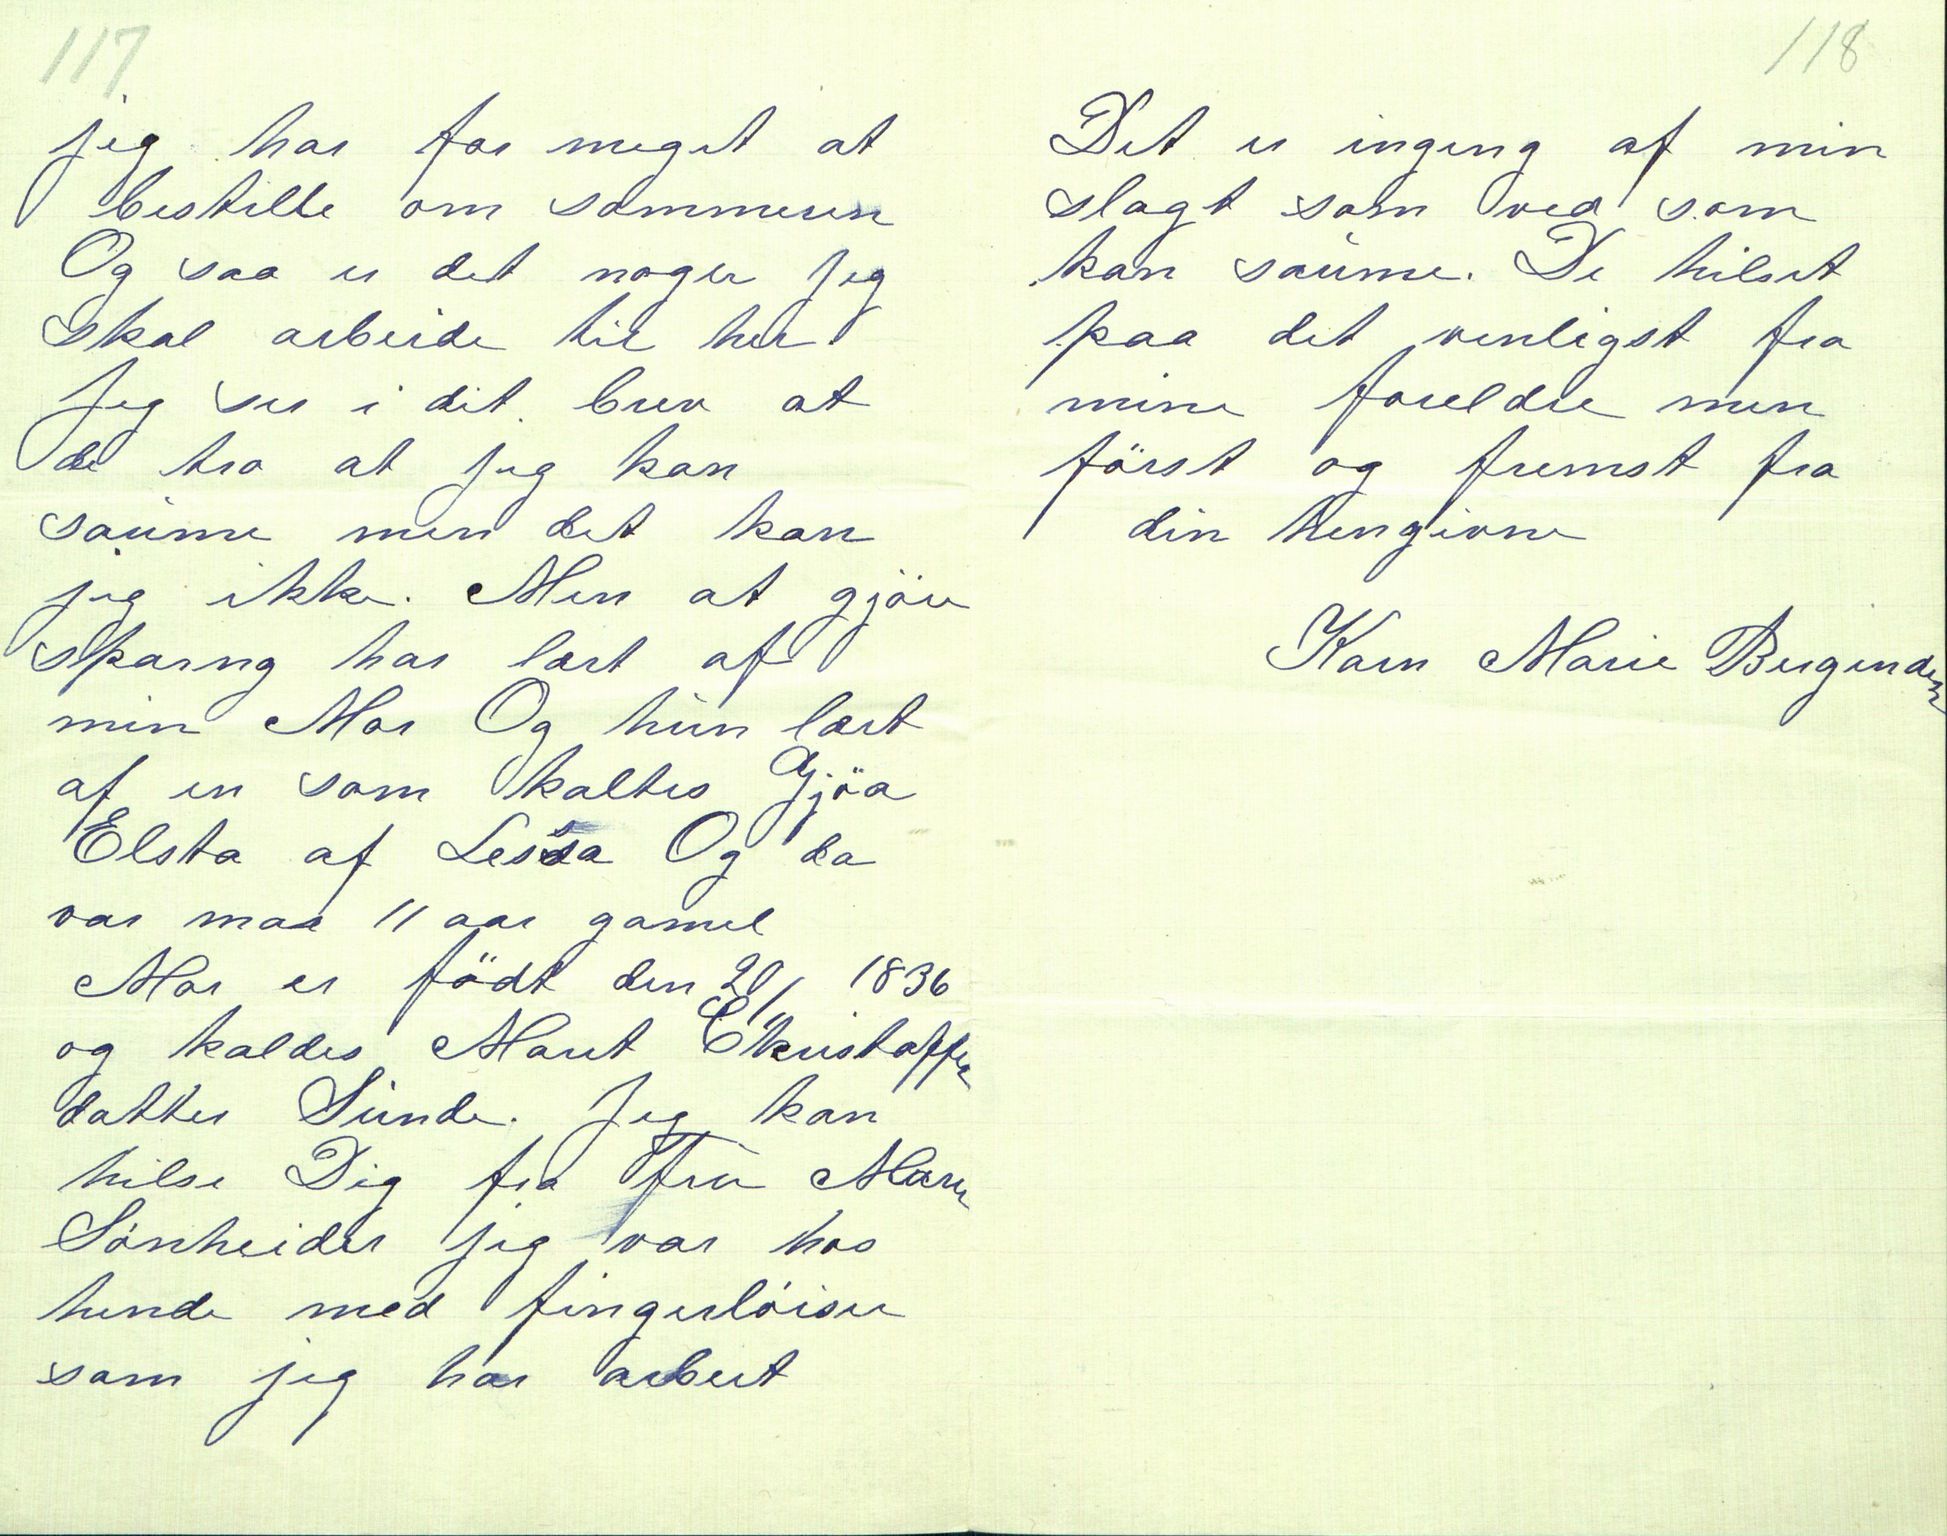 117
jeg har for meget at
bestille om sommeren
Og saa er det noger jeg
skal arbeide til her
Jeg ser i dit brev at
de tro at jeg kan
saume men det kan
jeg ikke. Men at gjöre
sparng har lært af
min Mor Og hun lært
af en som kaltes Gjöa
Elsta af Lessa Og da
var maa 11 aar gamel
Mor er födt den 20/ 1836
og kaldes Marit Ekristoffer
datter Sunde. Jeg kan
hilse Dig fra Fru Marn
Sönheider jeg var hos
hende med fingerlöiser
som jeg har arbeit
118
Det er ingeng af min
slagt som ved som
kan saume. De hilset
paa det venligst fra
mine foreldre men
först og fremst fra
din hengivne
Karn Marie Bergenden